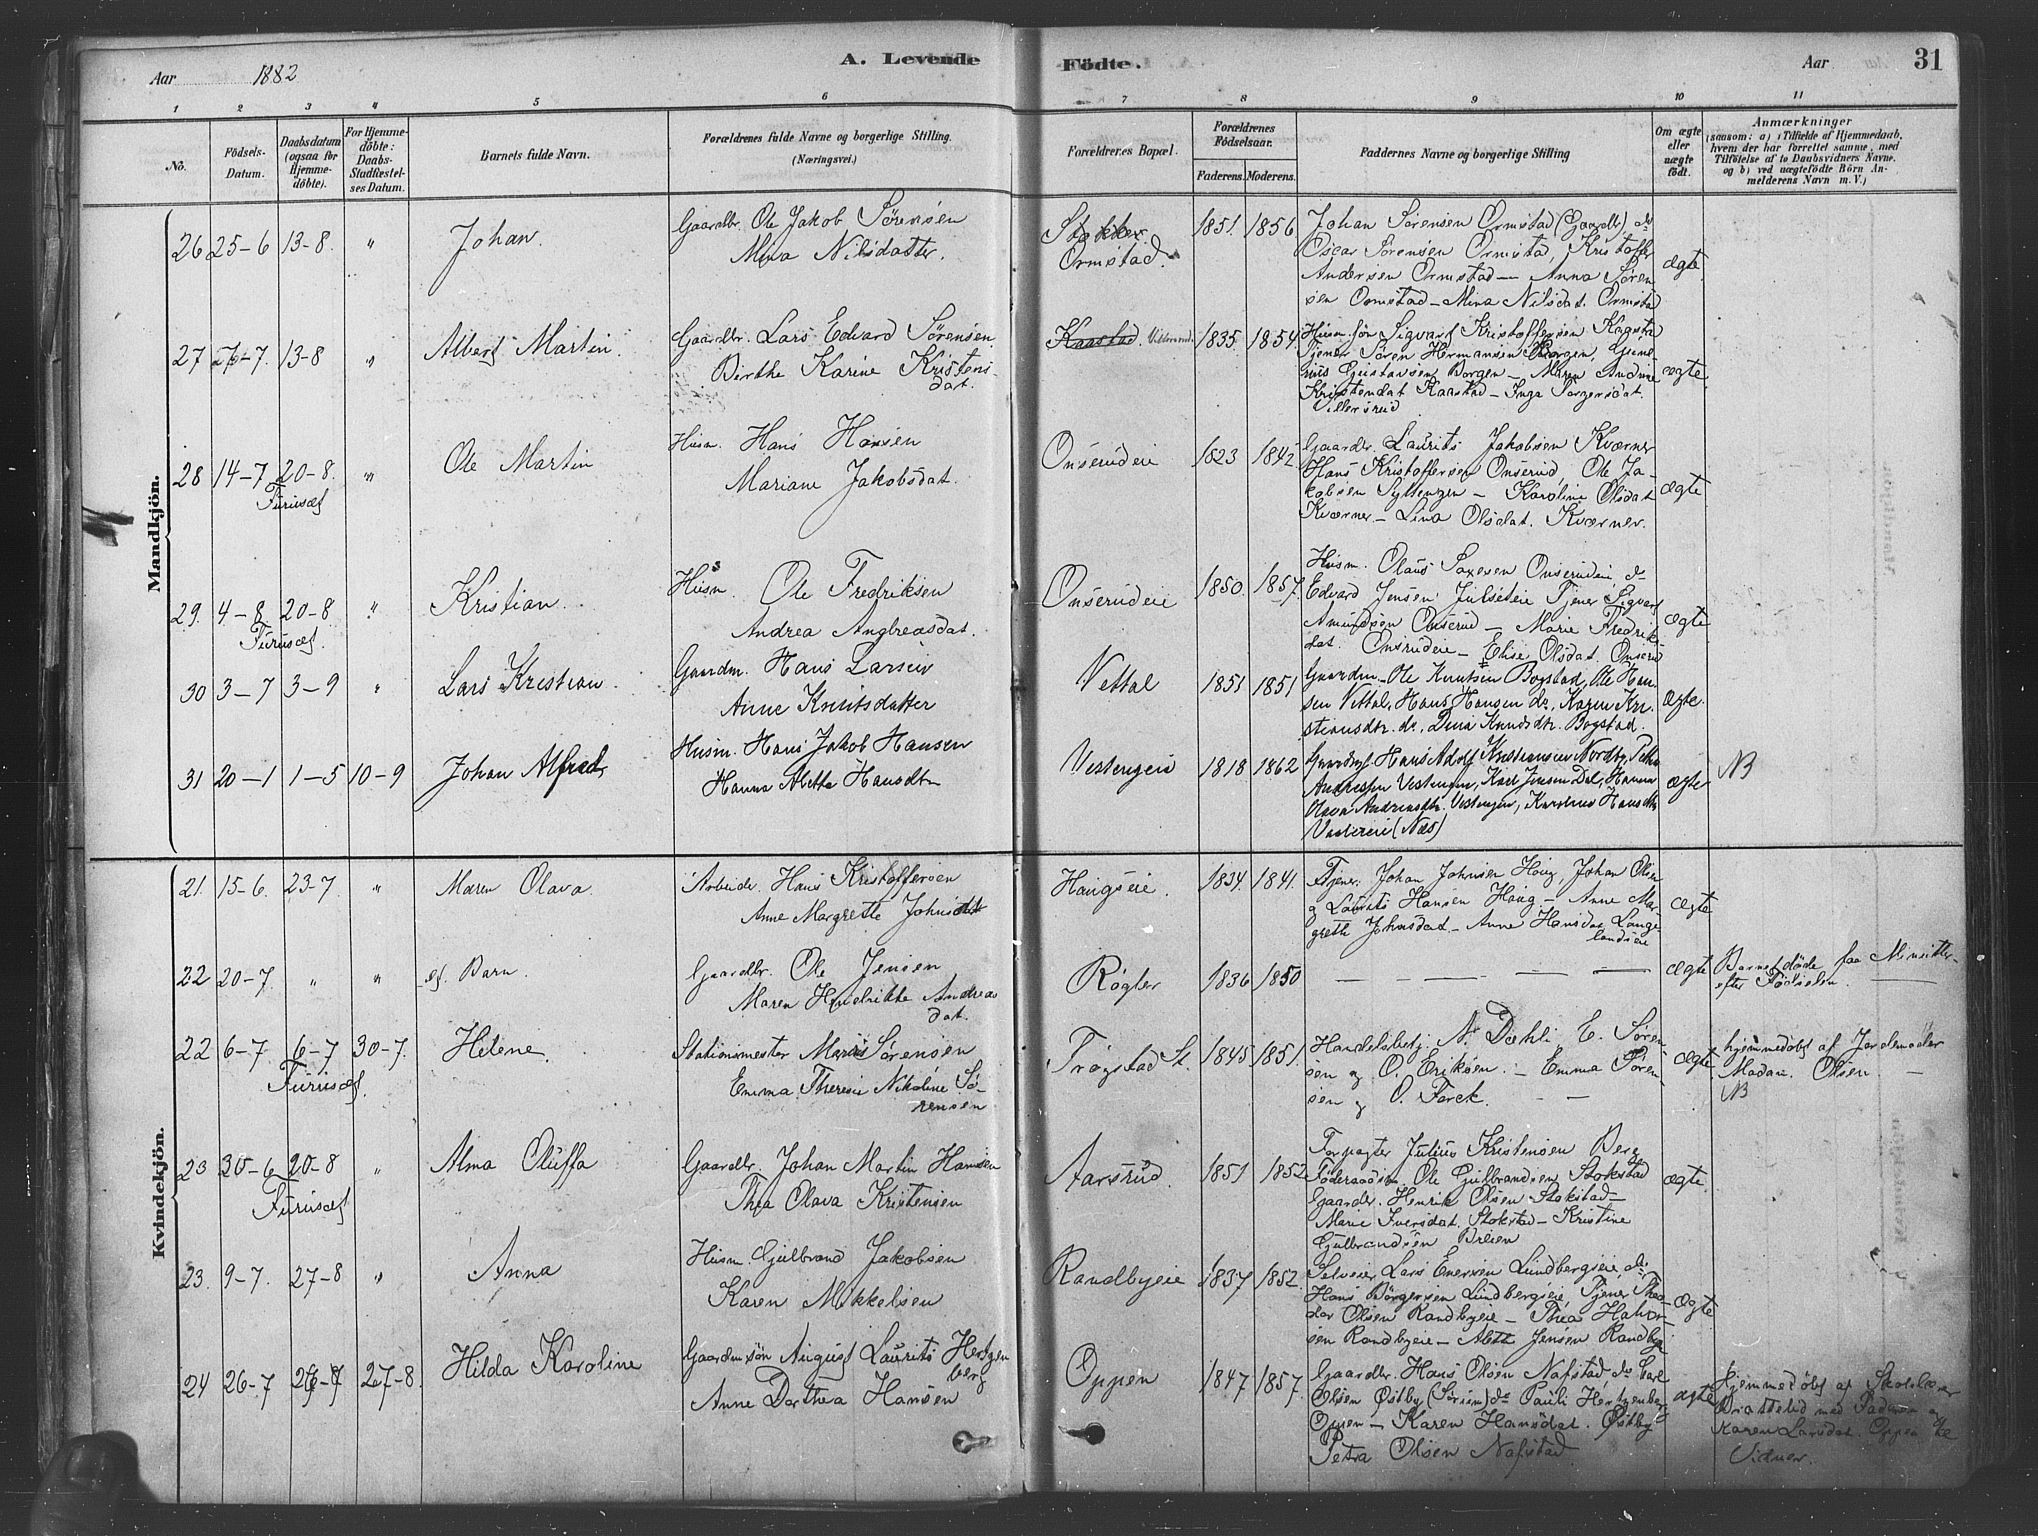 Aar 1882 A. Levende Födte. Aar 31
1 2 3 4 5 6 7 8 9 10 11
No. Födsels-Datum. Daabsdatum (ogsaa for Hjemmedöbte). For Hjemmedöbte: Daabs-Stadfæstelses Datum. Barnets fulde Navn. Forældrenes fulde Navne og borgerlige Stilling. (Næringsvei.) Forældrenes Bopæl. Forældrenes Födselsaar. Faderens. Moderens. Faddernes Navne og borgerlige Stilling Om ægte eller uægte födt. Anmærkninger (saasom: a) i Tilfælde af Hjemmedaab, hvem der har forrettet samme, med Tilföielse af to Daabsvidners Navne, og b) ved uægtefödte Börn Anmelderens Navn m. V.)
Mandkjön.
26 25-6 13-8. " Johan. Gaardbr. Ole Jakob Sørensen
Mina Nilsdatter.
Ormstad. 1851. 1856
Johan Sørensen Ormstad (Gaardbr) do
Oscar Sørensen Ormstad, Kristoffer
Andersen Ormstad — Anna Søren
sen Ormstad — Mina Nilsdat. Ormstad
ægte
27 13-8 " Albert Martin. Gaardbr. Lars Edvard Sørensen.
Birthe Karine Kristens
dat.
Kaastad. 1835. 1854
Husm. søn Sigvart Kristoffersen Kaasta
Tjener Søren Hermansen Borgen, Gune
rius Gustavsen Borgen — Maren Andrine
Kristendat Kaastad — Inga
Villersrud
ægte
28 14-7 20-8. " Ole Martin Husm. Hans Hansen
Furusæt
Mariane Jakobsdat.
Onsrudeie 1823 1842
Gaardbr. Laurits Jakobsen Kværner
Hans Kristoffersen Onserud, Ole Ja-
kobsen — Karoline Olsdat
Kværner — Lina Olsdat. Kværner.
ægte
29. 4-8 20-8 " Kristian. Husm Ole Fredriksen
Furusæt.
Andrea Andreasdat.
Onserudeie 1850. 1857.
Husm. Olaus Onserudeie, do
Edvard Jensen Julseteie Tjener Sigvart
Amundsen Onserud — Marie Fredrik
dat. Onsrudeie — Elise Olsdat Onserud
ægte
30 3-7 3-9 " Lars Kristian. Gaardm. Hans Larsen
Anne Knutsdatter
Vettal 1851 1851
Gaardm. Ole Knutsen Bogstad, Ole Han
sen Vettal, Hans Hansen do, Karen Kri
stiansdtr. do., Dina Knudsdtr. Bogstad.
ægte.
31 20-1 1-5 10-9 Johan Alfred Husm. Hans Jakob Hansen
Hanna Alette Hansdtr
Vestengeie 1818 1862
Hans Adolf Kristiansen Nordby,
Andersen Vestengen, Karl Jensen Dal, Hanna
Olava Andreasdtr. Vestengen, Karoline Hansdtr
(Næs)
ægte NB
Kvindekjön.
21. 15-6. 23-7. " Maren Olava. Arbeider. Hans Kristoffersen
Anne Margrethe Johnsdat
Haugseie. 1834. 1841.
Tjener. Johan Johnsen Haug, Johan Olsen
og Laurits Hansen Haug — Anne Mar-
grethe Johnsdat. — Anne Hansdat Lange
landseie
ægte
22 20-7. " " et Barn. Gaardbr. Ole Jensen
Maren Hendrikke Andreas
dat.
Røgler 1836 1850 — — — —
ægte Barnet døde faa Minutter
efter Fødselen.
22 6-7 6-7 30-7. Helene. Stationsmester Marius Sørensen
Furusæt
Emma Theresie Nikoline Sø-
rensen
Trøgstad St. 1845 1851.
Handelsbetj. N. Dæhli, E. Søren-
sen og O. Eriksen. — Emma Søren-
sen og O. Forck. — —
ægte hjemmedøbt af Jordemoder
Madam. Olsen —
NB
23 30-6 20-8 " Alma Oluffa Gaardbr. Johan Martin Hansen
Furusæt
Thea Olava Kristensen
Aarsrud. 1851 1852
Forpagter Julius Kristensen Berg
Føderaadsm. Ole Gulbrandsen Stokstad
Gaardbr. Henrik Olsen Stokstad —
Marie Iversdat. Stokstad — Kristine
Gulbrandsen Breen
ægte
23. 9-7. 27-8 " Anna Husm. Gulbrand Jakobsen
Karen Mikkelsen
Randbyeie 1837 1852.
Selveier Lars Enersen Lundbergseie, do
Hans Børgersen Lundbergseie, Tjener Theo-
dor Olsen Randbyeie — Thea Halvor
sen Randbyeie — Alette Jensen Randby
ægte
24 26-7 27-8. Hilda Karoline Gaardm.søn August Laurits Hertzen
berg
Anne Dorthea Hansen
Oppen 1847 1857.
Gaardbr. Hans Olsen Nafstad do Carl
Olsen Østby (Sørum) do Pauli Hertzenberg
Oppen — Karen Hansdat. Østby
Petra Olsen Nafstad.
ægte Hjemmedøbt af Skolelærer
Brattelid med Faderen og
Karen Larsdat. Oppen
Vidner.